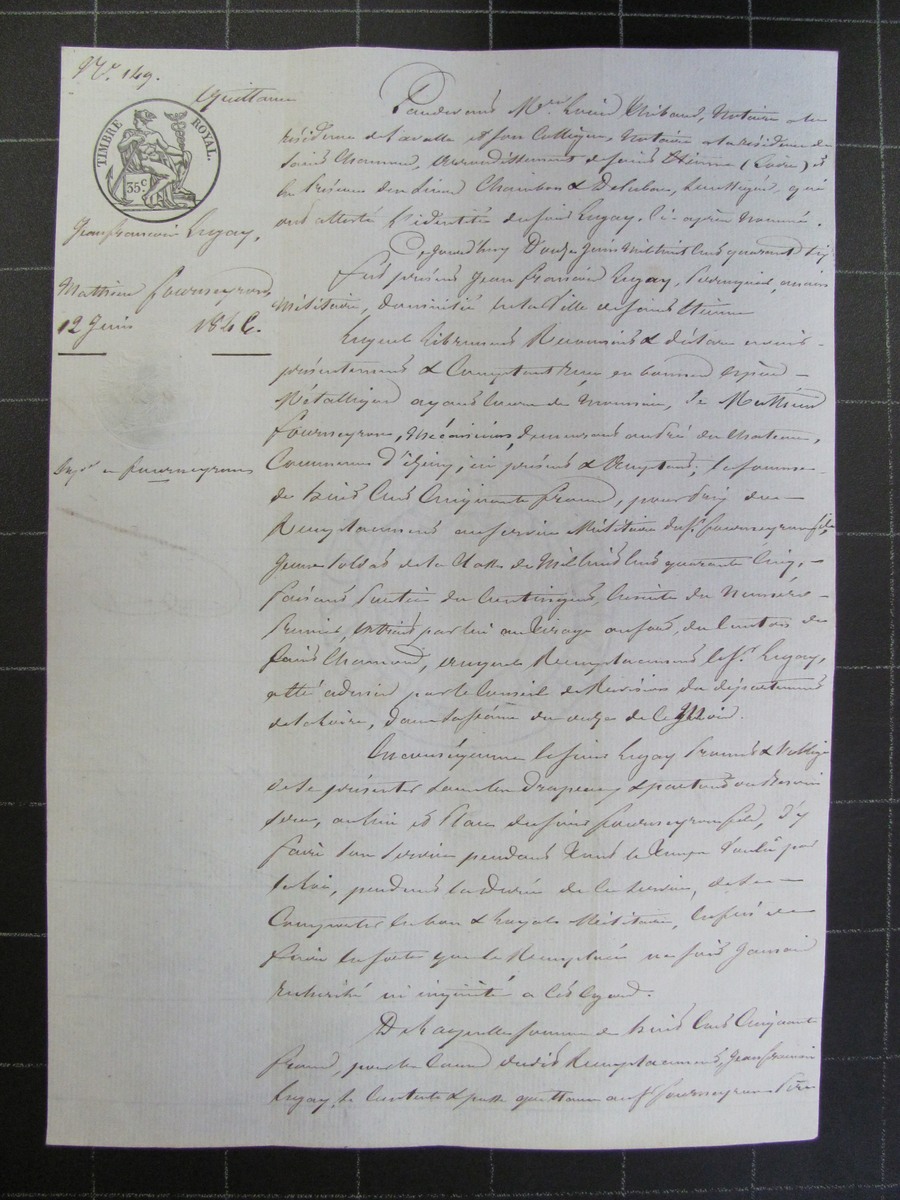 N.° 149.
Quittance
TIMBRE ROYAL.
35 c.
Jean françois Lugay,
Mathieu fourneyron
12 Juin 1846.
fourneyron
Pardevant M.tre Thibaud, Notaire à la
résidence de Lavalla et son Collègue, Notaire à la résidence de
saint Chamond, Arrondissement de saint Etienne (Loire) et
en présence des sieurs Chambon & soussignés, qui
ont attesté l'identité du sieur Lugay, ci-après nommé.
Cejourd'huy Douze Juin mil huit cent quarante six,
fut présent Jean françois Lugay, ancien
Militaire, domicilié en la Ville de saint Etienne
Lequel librement Reconnait & déclare avoir
présentement & Comptant Reçu en bonnes espèces
Métalliques ayant Cours de Monnaie, de Mathieu
fourneyron, Mécanicien, demeurant au du Chateau,
Commune d'Izieux, ici présent & acceptant, la somme
de huit Cent Cinquante francs, pour prix du
Remplacement au service Militaire du s.r fourneyron fils,
Jeune soldat de la Classe de Mil huit Cent quarante Cinq,
faisant partie du Contingent, ensuite du Numéro
premier, extrait par lui au tirage au sort, du Canton de
saint Chamond, auquel Remplacement le s.r Lugay,
a été admis par le Conseil de Révision du département
de la Loire, dans sa séance du onze de ce Mois.
En conséquence le sieur Lugay Promet & s'oblige
de se présenter sous les Drapeaux & partout où Besoin
sera, au lieu et Place du sieur fourneyron fils, d'y
faire son service pendant tout le temps voulu par
la loi, pendant la durée de ce service, de se
Comporter en bon & loyal Militaire, enfin de
faire en sorte que le Remplacé ne soit Jamais
recherché ni inquiété à cet égard.
De laquelle somme de huit Cent Cinquante
francs, pour les Causes dudit Remplacement, Jean françois
Lugay, se Contente & passe quittance au s.r fourneyron Père